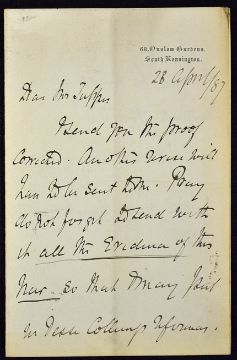 68, Onslow Gardens,
South Kensington.
28 April/87
Dear Mr Tupper
I send you the proof
corrected. Another revise will
have to be sent to me. Pray
do not forget to send with
it all the Evidence of this
year - so that I may put
in